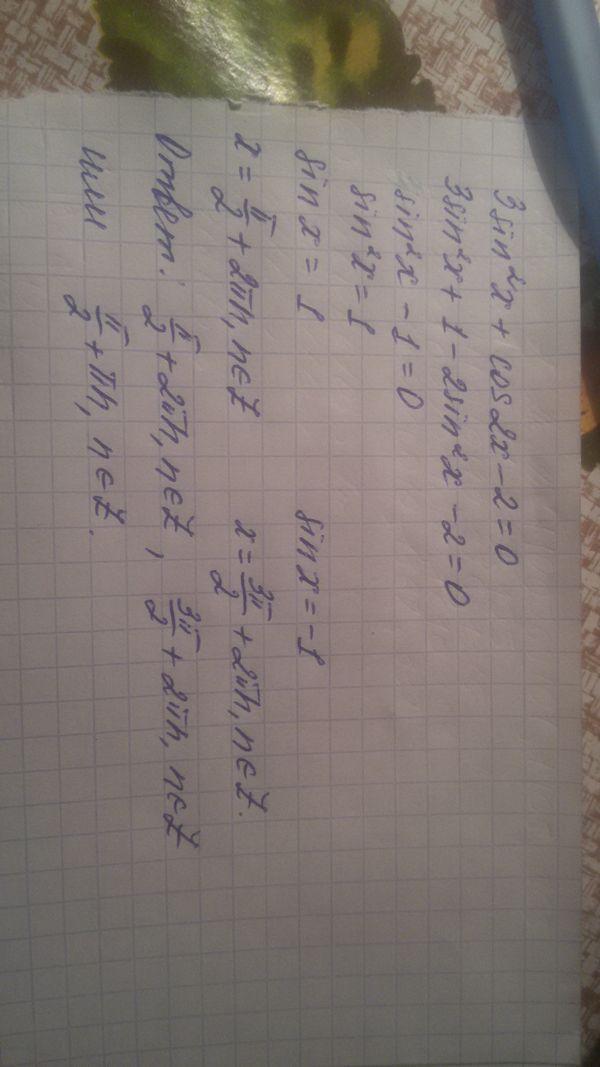 3sin²x + cos2x - 2 = 0
3sin²x + 1 - 2sin²x - 2 = 0
sin²x - 1 = 0
sin²x = 1
sin x = 1 sin x = -1
x = π/2 + 2πn, n∈Z x = 3π/2 + 2πn, n∈Z.
Ответ: π/2 + 2πn, n∈Z, 3π/2 + 2πn, n∈Z
или π/2 + πn, n∈Z.